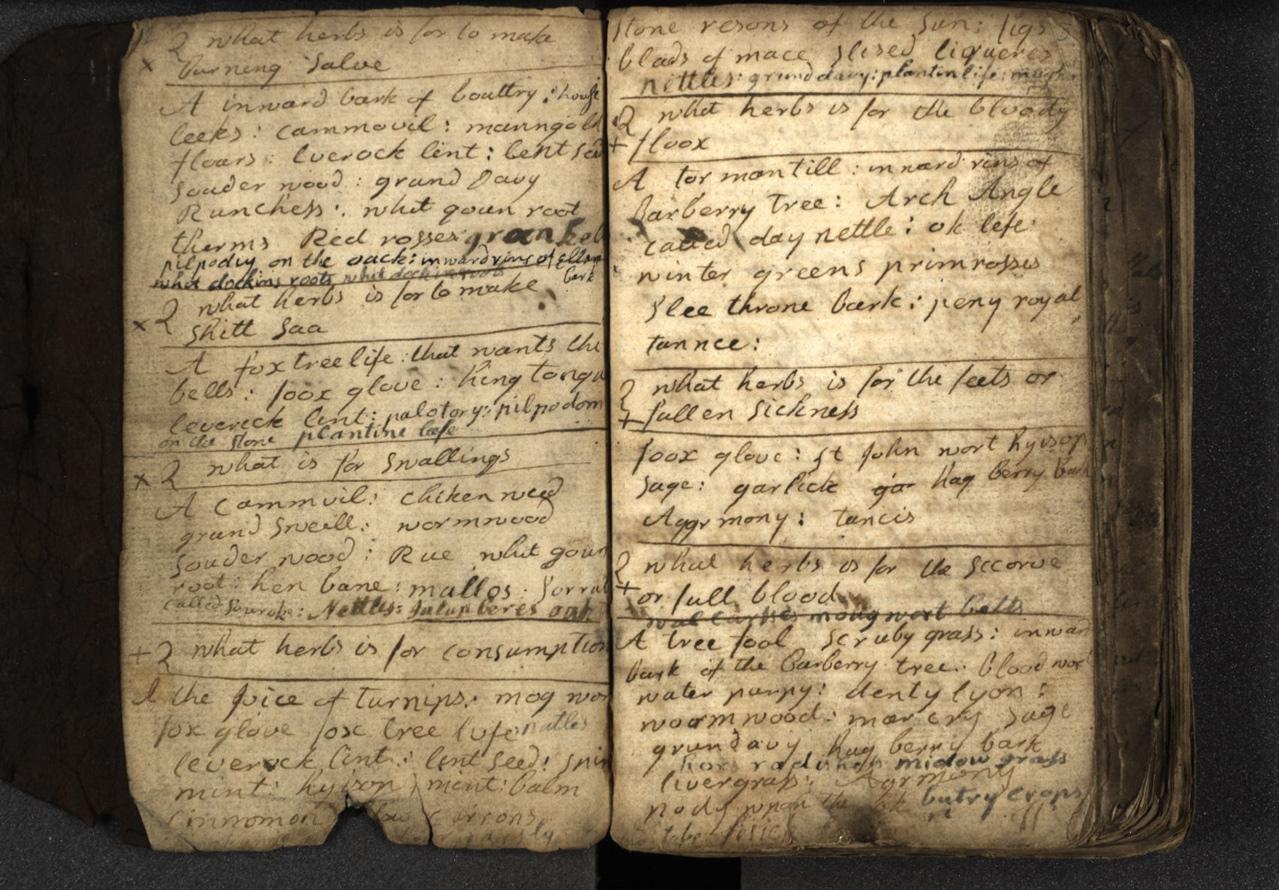 Q what herbs is for to make
x burning Salve
A inward bark of bouttry: hous
leeks: cammovil: manngold
flours: leverock lint: lent see
Souder wood: grund Davy
Runchess: whit goun root
therms Red rosses gran
pilpodey on the oack: inward rins of ellom
whit dockins roots whit dockin roots bark
Q what herbs is for to make
x Shitt Saa
A foxtree life: that wants the
bells: foox glove: king tongu
leverick lint: palotory: pilpodom
on the stone plantine leefe
x Q what is for Swallings
A Cammvil: chiken weed
grund Sweill: wormwood
Souder wood: Rue whit goun
root: hen bane: mallos: Sorral
called Sourobe: Nettles:
+ Q what herbs is for consumption
A the Juice of turnips: mog wor
fox glove fox tree lyfe natles
leverick lint: lent Seed:
mint: hysson mint: balm
Cinnomon carrons
Stone resons of the Sun: figs
blads of mace Slised liqueres
nettles: grund davy: plantin life: mugh
Q what herbs is for the bloody
+ floox
A tormontill: inward rins of
Barberry tree: Arch Angle
called day nettle: ok lefe
winter greens primrosses
Slee throne bark: peny royal
tannce:
Q what herbs is for the feets or
+ fallen Sickness
foox glove: St John wort hyisop
Sage: garlick ga hag berry bark
Aggrmony: tancis
Q what herbs is for the Sccorve
+ or full blood
wal carses moug wort betts
A tree fool Scruby grass: inwar
bark of the Barberry tree: blood wor
water purpy: denty lyon:
woormwood: marcry Sage
grundavy hag berry bark
hors radishes midow grass
livergrass: Agrmony
pody upon the ok butry crops